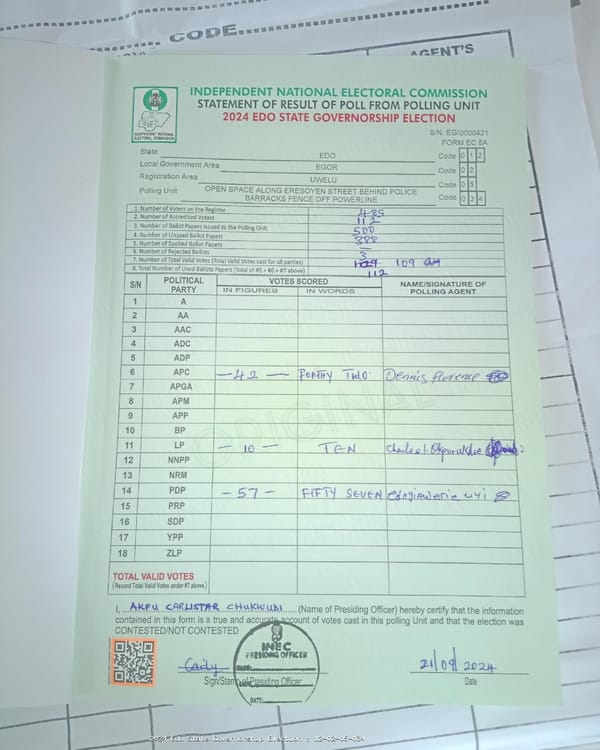 CODE
AGENT'S
INDEPENDENT NATIONAL ELECTORAL COMMISSION
STATEMENT OF RESULT OF POLL FROM POLLING UNIT
2024 EDO STATE GOVERNORSHIP ELECTION
INEC
INDEPENDENT NATIONAL ELECTORAL COMMISSION
S/N: EG/0000421
FORM EC 8A
State EDO Code 0 1 2
Local Government Area EGOR Code 0 2
Registration Area UWELU Code 0 5
Polling Unit OPEN SPACE ALONG ERESOYEN STREET BEHIND POLICE BARRACKS FENCE OFF POWERLINE Code 0 3 4
1. Number of Voters on the Register 485
2. Number of Accredited Voters 112
3. Number of Ballot Papers Issued to the Polling Unit 500
4. Number of Unused Ballot Papers 388
5. Number of Spoiled Ballot Papers —
6. Number of Rejected Ballots 3
7. Number of Total Valid Votes (Total Valid Votes cast for all parties) 109
8. Total Number of Used Ballots Papers (Total of #5 + #6 + #7 above) 112
S/N POLITICAL PARTY VOTES SCORED NAME/SIGNATURE OF POLLING AGENT
IN FIGURES IN WORDS
1 A
2 AA
3 AAC
4 ADC
5 ADP
6 APC —42— FORTHY TWO Dennis florence
7 APGA
8 APM
9 APP
10 BP
11 LP —10— TEN Charles I.
12 NNPP
13 NRM
14 PDP —57— FIFTY SEVEN uyi
15 PRP
16 SDP
17 YPP
18 ZLP
ORIGINAL
TOTAL VALID VOTES
(Record Total Valid Votes under #7 above)
I, AKPU CARLISTAR CHUKWUDI (Name of Presiding Officer) hereby certify that the information
contained in this form is a true and accurate account of votes cast in this polling Unit and that the election was
CONTESTED/NOT CONTESTED
INEC
PRESIDING OFFICER
21/09/2024
Sign/Stamp of Presiding Officer Date
DATE:
2024 Edo State Governorship Election : 12-02-05-034